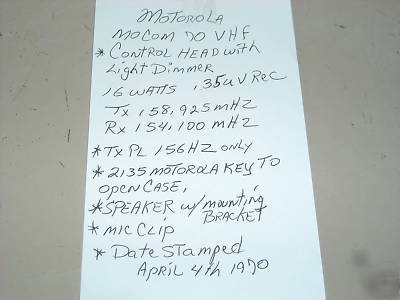 MOTOROLA
MOCOM 70 VHF
* CONTROL HEAD with
Light Dimmer
16 WATTS .35uV REC
Tx 158,925 mHz
Rx 154,100 mHz
* Tx PL 156HZ only
* 2135 MOTOROLA KEY TO
open CASE,
* SPEAKER w/ mounting
BRACKET
* MIC CLIP
* Date STamped
APRIL 4th 1970